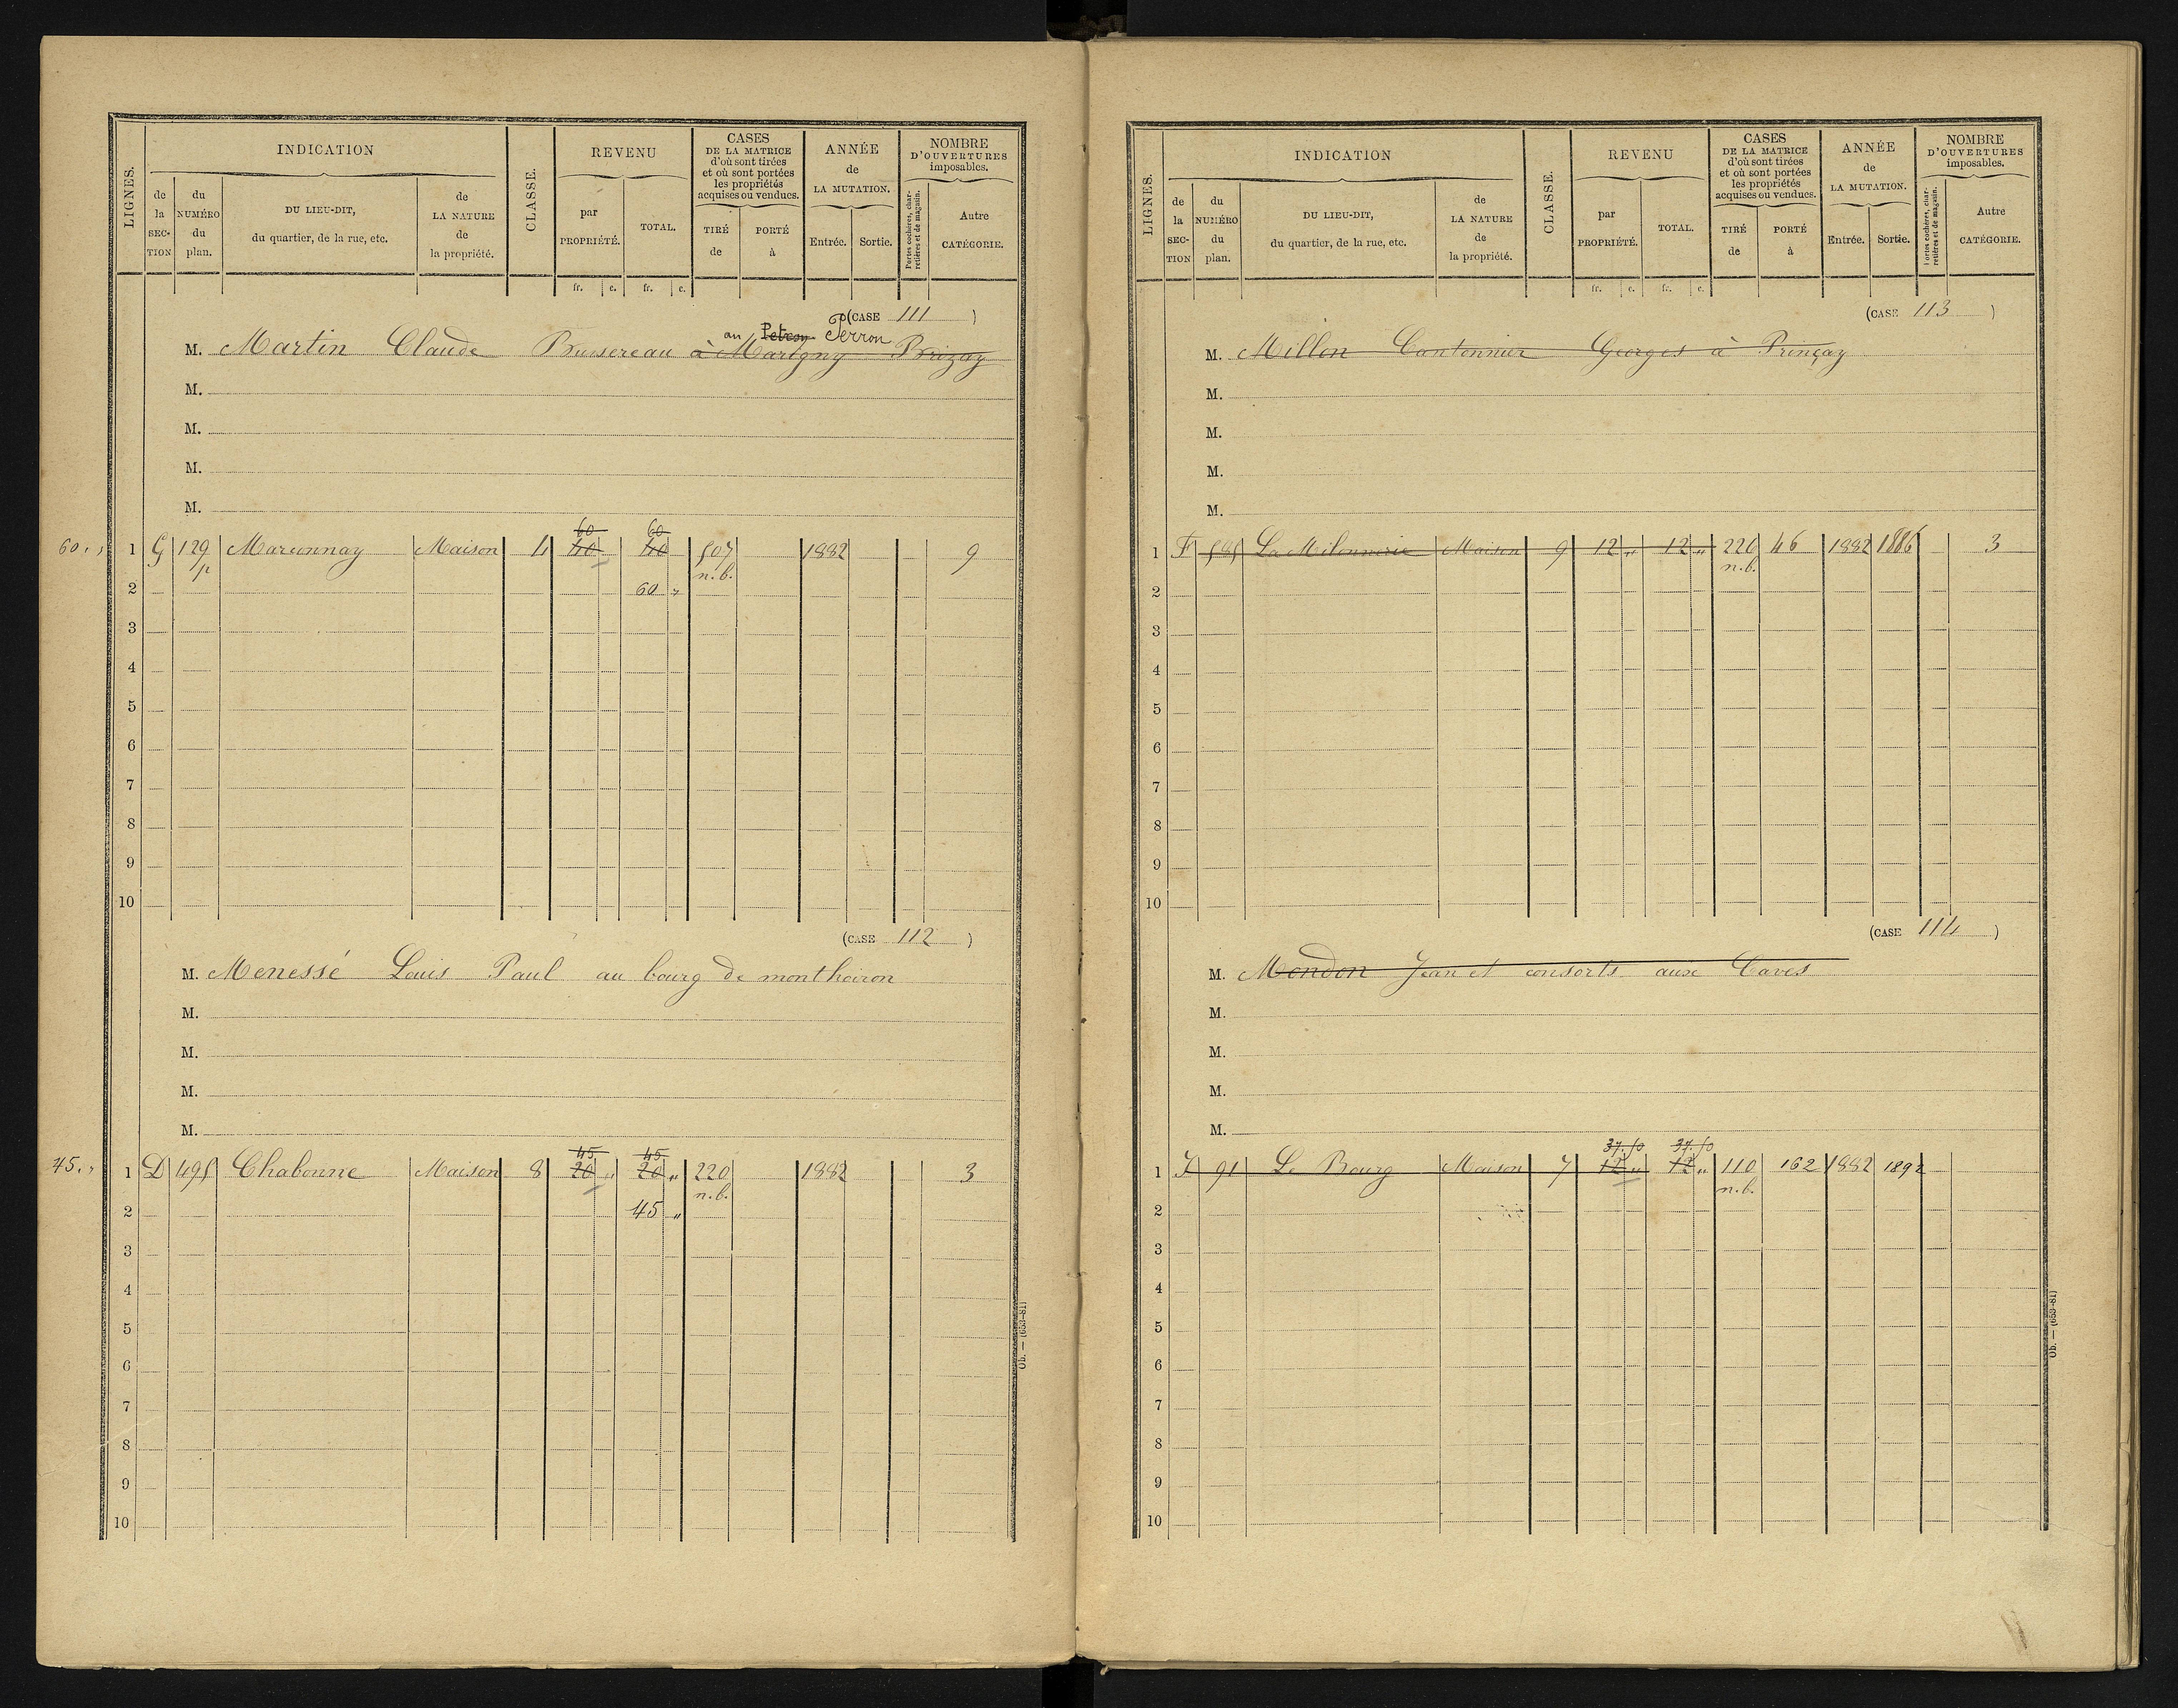 LIGNES.
INDICATION
de la SECTION
du NUMÉRO du plan.
DU LIEU-DIT, du quartier, de la rue, etc.
de LA NATURE de la propriété.
CLASSE.
REVENU
par PROPRIÉTÉ.
TOTAL.
CASES DE LA MATRICE d'où sont tirées et où sont portées les propriétés acquises ou vendues.
TIRÉ de
PORTÉ à
ANNÉE de LA MUTATION.
Entrée.
Sortie.
NOMBRE D'OUVERTURES imposables.
Portes cochères, charretières et de magasin.
Autre CATÉGORIE.
fr. c. fr. c.
(CASE 111 )
au Petron Perron
M. Martin Claude Bussereau à Marigny Brizay
M.
M.
M.
M.
60 60
60 „ 1 G 129 Marunnay Maison 4 40 40 507 1882 9
p n.b.
2 60 „
3
4
5
6
7
8
9
10
(CASE 112 )
M. Menessé Louis Paul au bourg de monthoiron
M.
M.
M.
M.
45 45
45 „ 1 D 495 Chabonne Maison 8 20 „ 20 „ 220 1882 3
n.b.
2 45 „
3
4
5
6
7
8
9
10
Ob. — (653-81)
LIGNES.
INDICATION
de la SECTION
du NUMÉRO du plan.
DU LIEU-DIT, du quartier, de la rue, etc.
de LA NATURE de la propriété.
CLASSE.
REVENU
par PROPRIÉTÉ.
TOTAL.
CASES DE LA MATRICE d'où sont tirées et où sont portées les propriétés acquises ou vendues.
TIRÉ de
PORTÉ à
ANNÉE de LA MUTATION.
Entrée.
Sortie.
NOMBRE D'OUVERTURES imposables.
Portes cochères, charretières et de magasin.
Autre CATÉGORIE.
fr. c. fr. c.
(CASE 113 )
M. Millon Cantonnier Georges à Prinçay
M.
M.
M.
M.
1 F 585 La Milonnerie Maison 9 12 „ 12 „ 226 46 1882 1886 3
n.b.
2
3
4
5
6
7
8
9
10
(CASE 114 )
M. Mondon Jean et consorts aux Caves
M.
M.
M.
M.
37.50 37.50
1 F 91 Le Bourg Maison 7 12 „ 12 „ 110 162 1882 1892
n.b.
2
3
4
5
6
7
8
9
10
Ob. — (653-81)